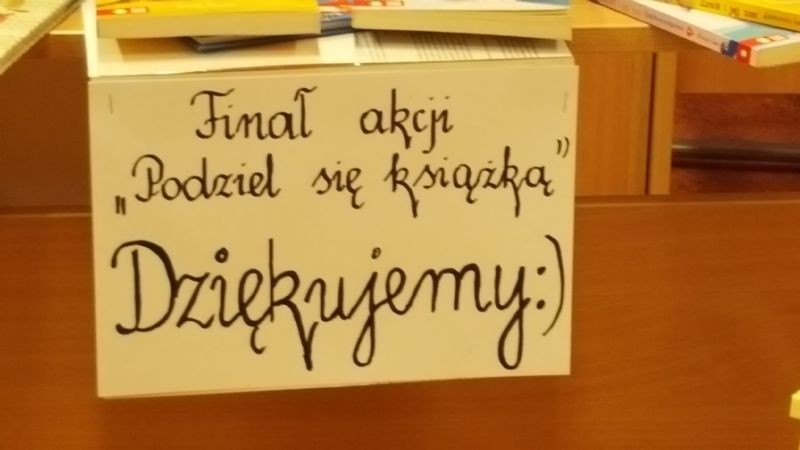 Finał akcji
„Podziel się książką”
Dziękujemy:)